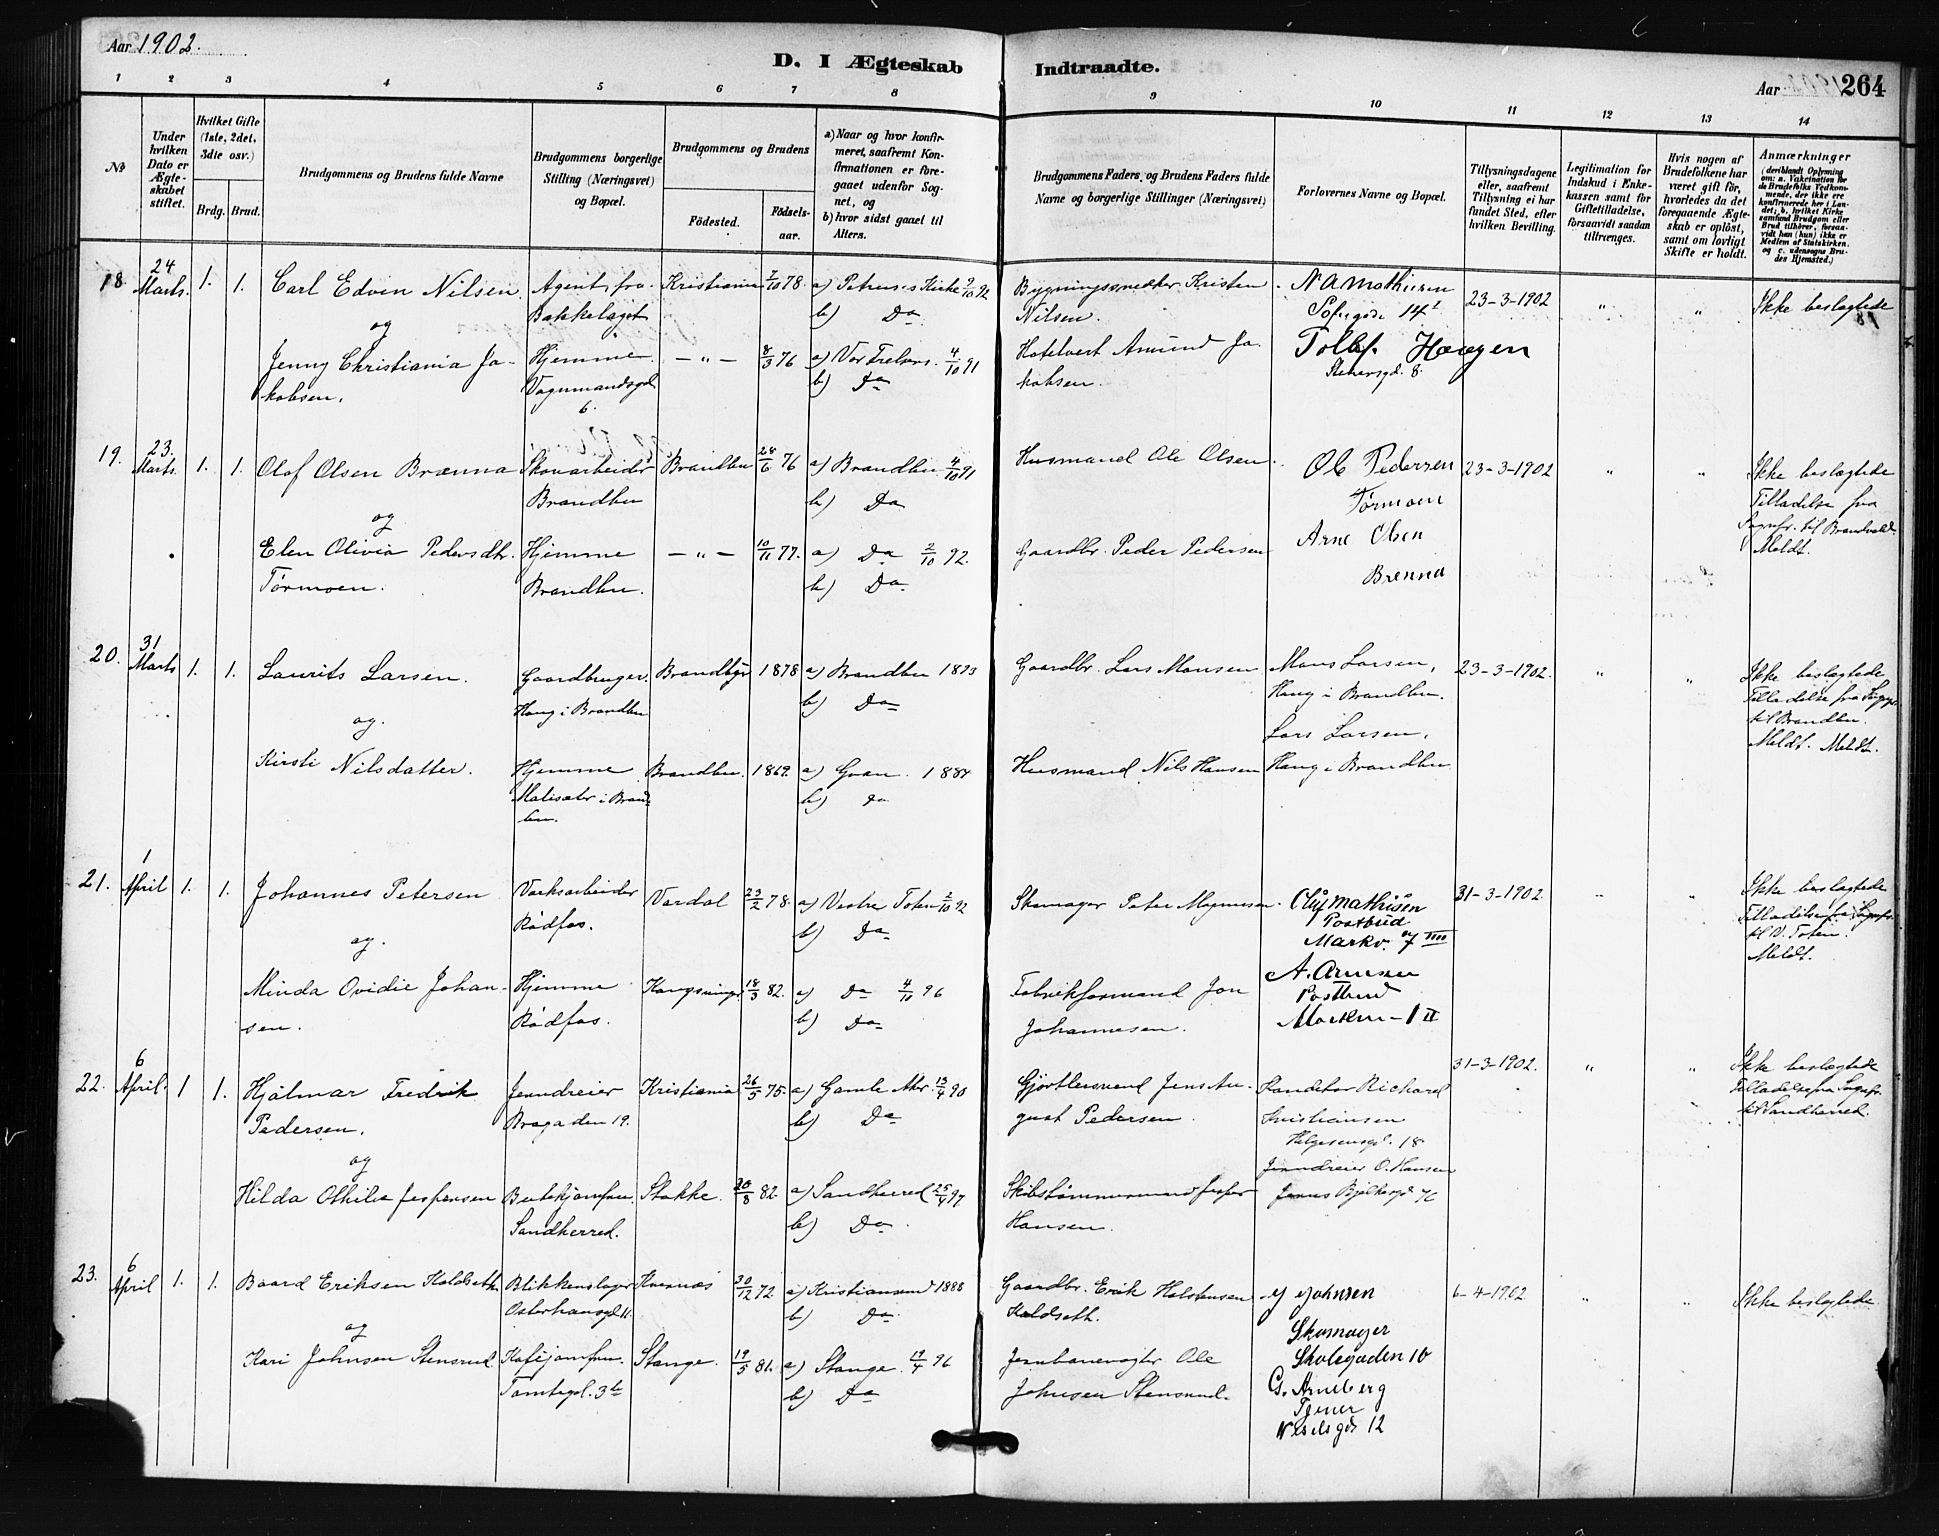 Aar 1902.
D. I Ægteskab Indtraadte.
Aar 264
1 2 3 4 5 6 7 8 9 10 11 12 13 14
№
Under hvilken Dato er Ægteskabet stiftet.
Hvilket Gifte (1ste, 2det, 3die osv.)
Brdg. Brud.
Brudgommens og Brudens fulde Navne
Brudgommens borgerlige Stilling (Næringsvei) og Bopæl.
Brudgommens og Brudens
Fødested. Fødselsaar.
a) Naar og hvor konfirmeret, saafremt Konfirmationen er foregaaet udenfor Sognet, og
b) hvor sidst gaaet til Alters.
Brudgommens Faders, og Brudens Faders fulde Navne og borgerlige Stillinger (Næringsvei)
Forlovernes Navne og Bopæl.
Tillysningsdagene eller, saafremt Tillysning ei har fundet Sted, efter hvilken Bevilling.
Legitimation for Indskud i Enkekassen samt for Giftetilladelse, forsaavidt saadan tiltrænges.
Hvis nogen af Brudefolkene har været gift før, hvorledes da det foregaaende Ægteskab er opløst, samt om lovligt Skifte er holdt.
Anmærkninger
(deriblandt Oplysning om: a. Vakcination for de Brudefolks Vedkommende, der ikke ere konfirmerede her i Landet; b. hvilket Kirkesamfund Brudgom eller Brud tilhører, forsaavidt han (hun) ikke er Medlem af Statskirken. og c. udensogns Brudes Hjemsted.)
18. 24 Marts. 1. 1. Carl Edvin Nilsen Agent, fra Bækkelaget Kristiania 7/10 78. a) Petrus's Kirke 2/10 92 b) Do
Bygningssnedker Kristen Nilsen. N A Mathiesen Sofiegade 14 I 23-3-1902 " " Ikke beslægtede
og
Jenny Christiania Jakobsen. Hjemme Vognmandsgd. 6. — " — 8/3 76 a) Vor Frelsers. 4/10 91 b) Do
Hotelvert Amund Jakobsen. Tollef Haugen Stenersgd. 8.
19. 23. Marts. 1. 1. Olaf Olsen Brænna Skovarbeider Brandbu Brandbu 28/6 76 a) Brandbu 4/10 91 b) Do
Husmand Ole Olsen. Ole Pedersen Tørmoen 23-3-1902 " " Ikke beslægtede Tilladelse fra Sognepr. til Brandvold. Meldt.
og
Elen Olivia Pedersdtr. Tørmoen. Hjemme Brandbu. — " — 10/11 77. a) Do 2/10 92. b) Do
Gaardbr. Peder Pedersen Arne Olsen Brenna
20. 31 Marts 1. 1. Laurits Larsen. Gaardbruger. Haug i Brandbu Brandbu 1878 a) Brandbu 1893 b) Do
Gaardbr. Lars Monsen Mons Larsen, Haug i Brandbu. 23-3-1902. " " Ikke beslægtede Tilladelse fra Sognepr. til Brandbu. Meldt. Meldt.
og.
Kirsti Nilsdatter. Hjemme Brandbu. 1869. a) Gran. 1884 b) Do
Husmand Nils Hansen Lars Larsen, Haug i Brandbu
21. 1 April 1. 1. Johannes Petersen Værksarbeider Rødfos. Vardal 23/2 78. a) Vestre Toten 2/10 92 b) Do
Skomager Peter Magnusen. Oluf Mathisen Postbud Markv. 7 IIII 31-3-1902. " " Ikke beslægtede Tilladelse fra Sognepr. til V. Toten. Meldt.
og.
Minda Ovidie Johansen. Hjemme Rødfos. Kongsvinger 18/3 82. a) Do 4/10 96 b) Do
Fabrikformand Jon Johannesen. A. Arnesen Postbud
22. 6 April. 1 1. Hjalmar Fredrik Pedersen. Jerndreier Bragaden 19. Kristiania 26/5 75. a) Gamle Aker. 13/4 90 b) Do
Gjørtlersvend Jens August Pedersen. Kandetør Richard Kristiansen Helgesensgd. 18 31-3-1902. " " Ikke beslægtede Tilladelse fra Sognepr. til Sandherred.
og
Hilda Othilie Jespersen Butikjomfru. Sandherred. Stokke. 20/8 82. a) Sandherred 25/4 97 b) Do
Skibstømmermand Jesper Hansen. Jerndreier O. Hansen
23. 6 April 1. 1. Baard Eriksen Koldseth Blikkenslager Osterhausgd. 11. Kvernæs 30/12 72. a) Kristiansund 1888 b) Do
Gaardbr. Erik Halstensen Koldseth. Johnsen Skomager Skolegaden 10 6-4-1902 " " Ikke beslægtede
og
Kari Johnsen Stensrud Kaféjomfru. Tomtegd. 3b Stange. 19/5 81. a) Stange. 19/4 96 b) Do
Jernbanevogter Ole Johnsen Stensrud. G. Arneberg Tjener Vesselsgd 12